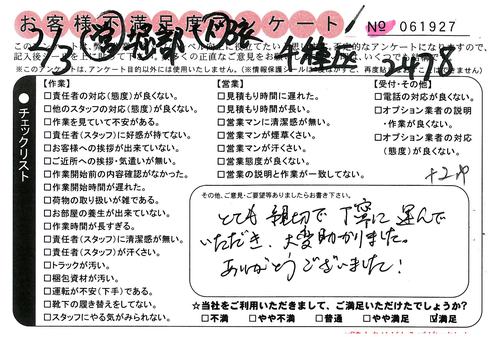 お客様不満足度アンケート！
№ 061927
2/3
3478
このアンケートは、
※このアンケートは、アンケート目的以外には使用いたしません。
●チェックリスト
【作業】
□責任者の対応(態度)が良くない。
□他のスタッフの対応(態度)が良くない。
□作業を見ていて不安がある。
□責任者(スタッフ)に好感が持てない。
□お客様への挨拶が出来ていない。
□ご近所への挨拶・気遣いが無い。
□作業開始前の内容確認がなかった。
□作業開始時間が遅れた。
□荷物の取り扱いが雑である。
□お部屋の養生が出来ていない。
□作業時間が長すぎる。
□責任者(スタッフ)に清潔感が無い。
□責任者(スタッフ)が汗くさい。
□トラックが汚い。
□梱包資材が汚い。
□運転が不安(下手)である。
□靴下の履き替えをしてない。
□スタッフにやる気がみられない。
【営業】
□見積もり時間に遅れた。
□見積もり時間が長い。
□営業マンに清潔感が無い。
□営業マンが煙草くさい。
□営業マンが汗くさい。
□営業態度が良くない。
□営業の説明と作業が一致してない。
【受付・その他】
□電話の対応が良くない。
□オプション業者の説明
・作業が良くない。
□オプション業者の対応
(態度)が良くない。
その他、ご意見・ご要望等ありましたらお書き下さい。
とても親切で丁寧に運んで
いただき、大変助かりました。
ありがとうございました!
☆当社をご利用いただきまして、ご満足いただけたでしょうか?
□不満 □やや不満 □普通 □やや満足 ☑満足